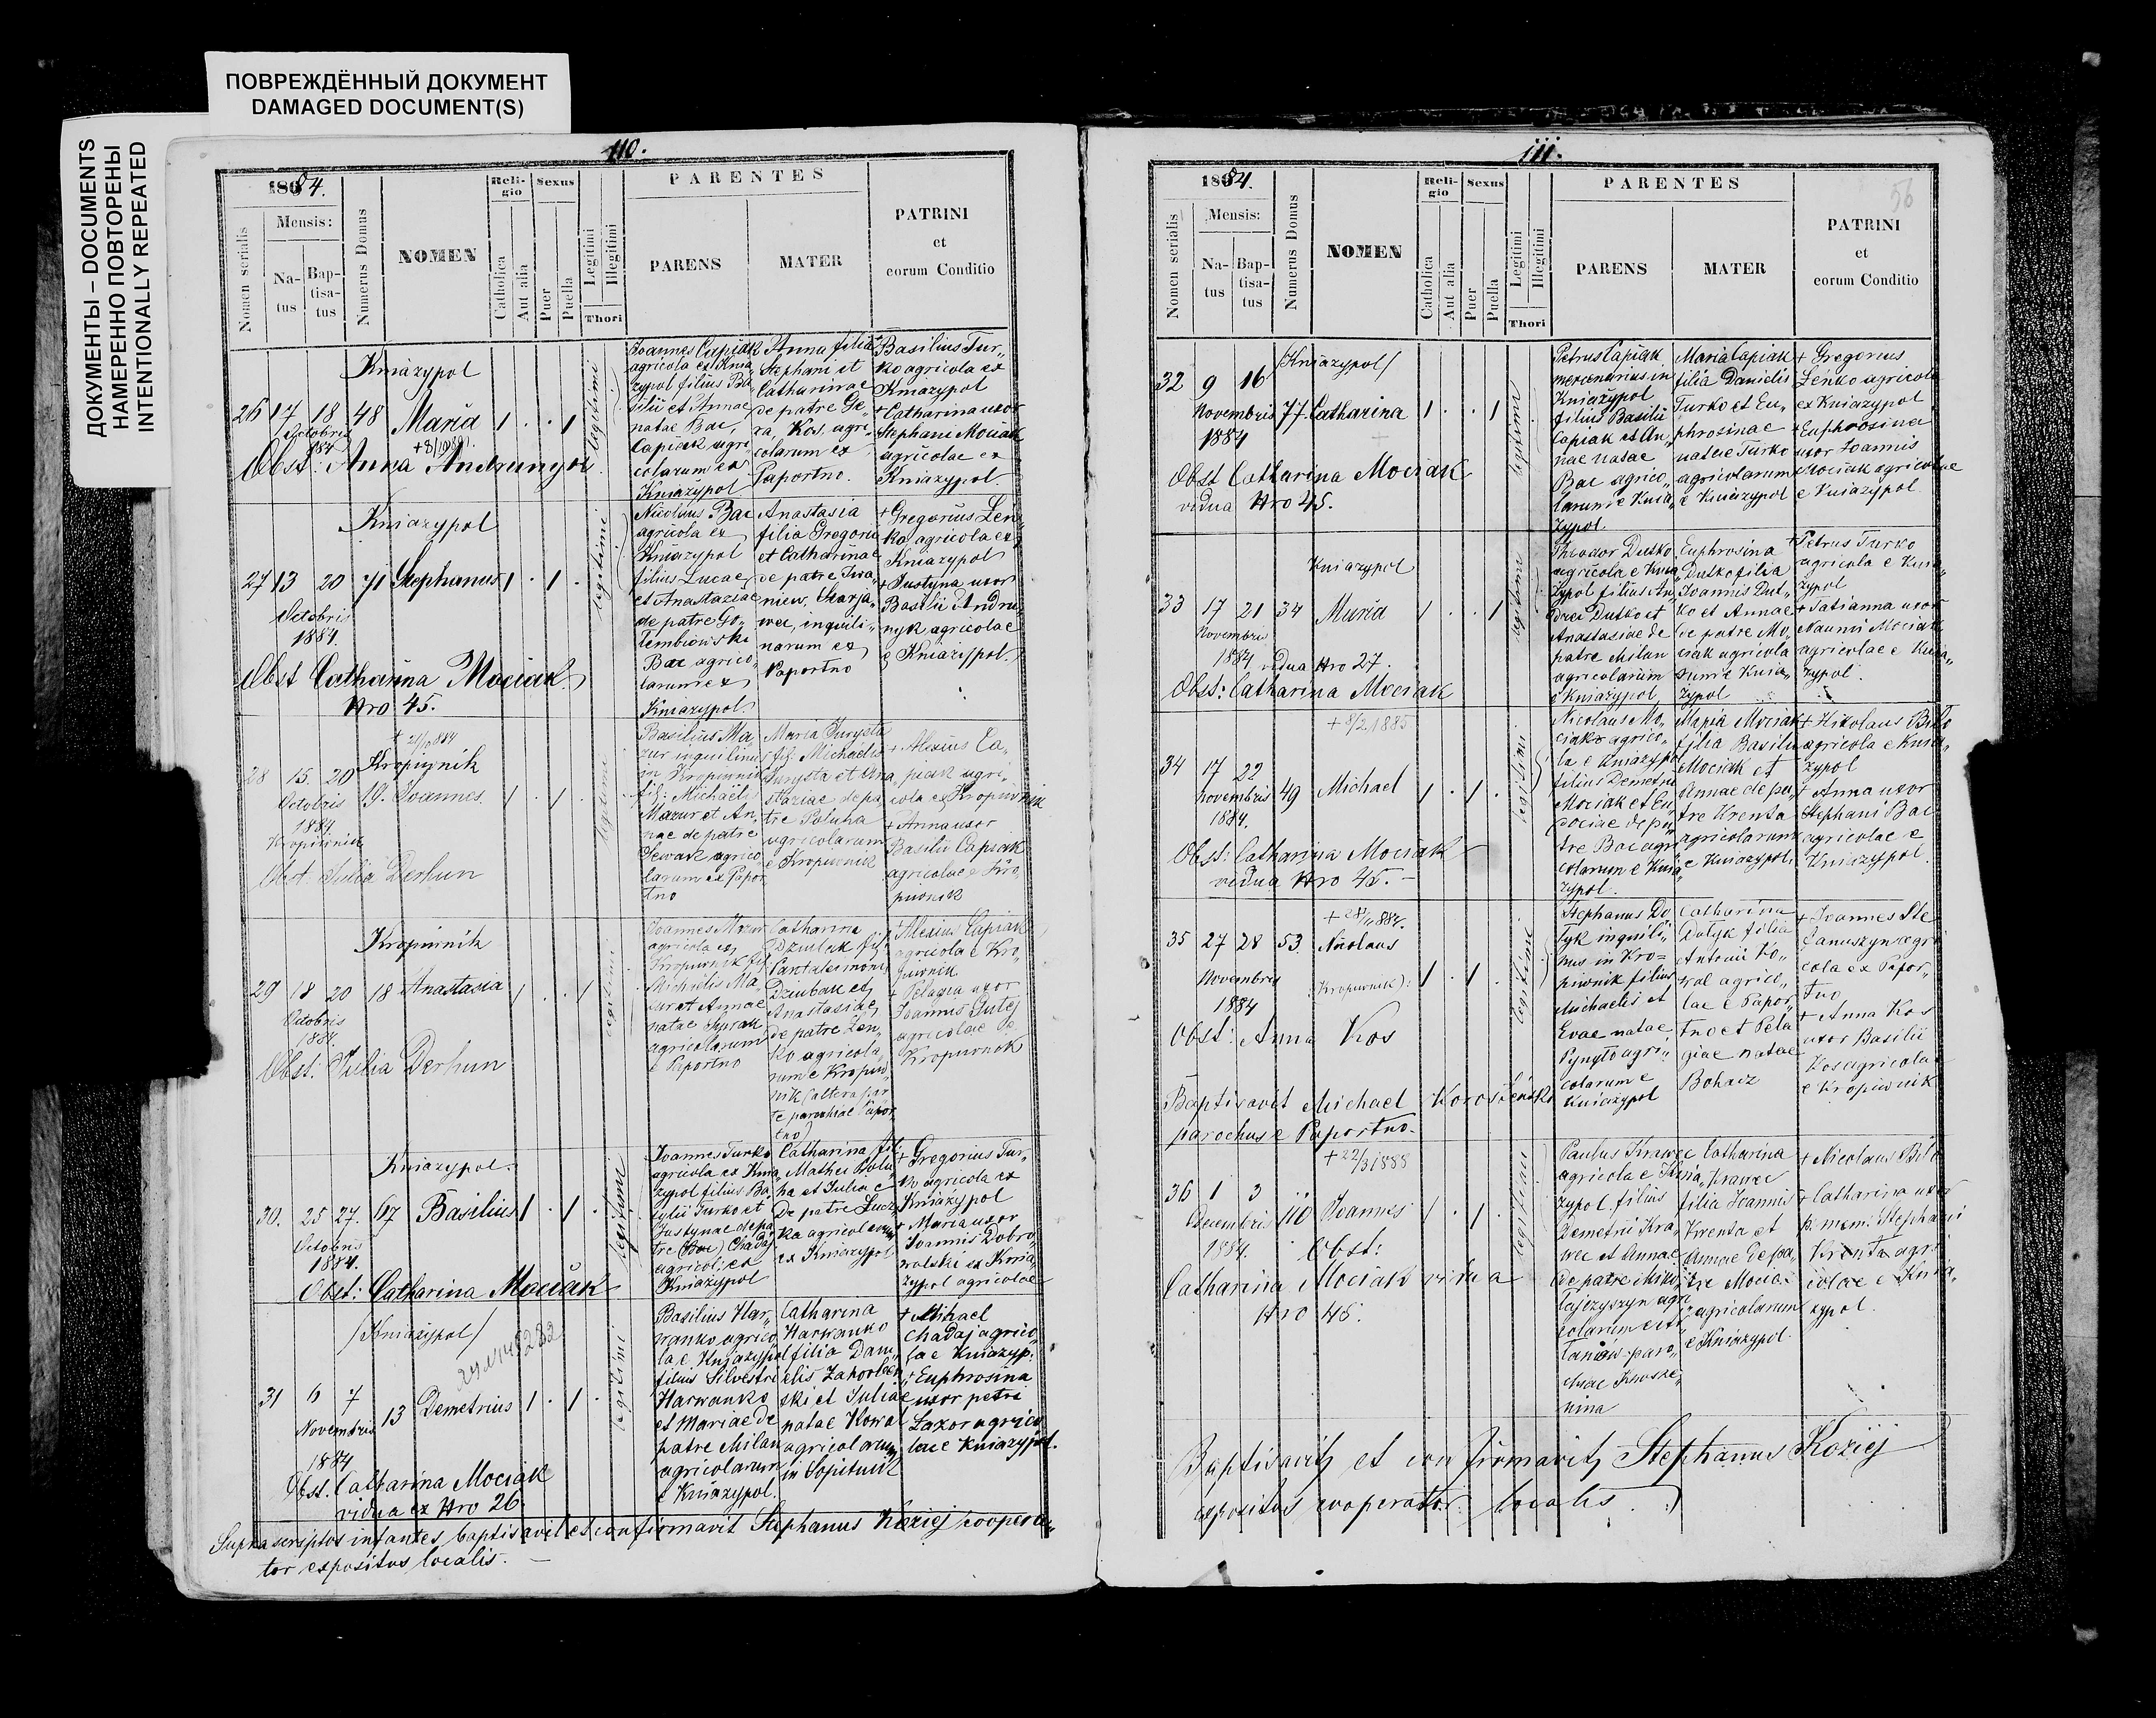 ПОВРЕЖДЁННЫЙ ДОКУМЕНТ
DAMAGED DOCUMENT(S)
ДОКУМЕНТЫ – DOCUMENTS
НАМЕРЕННО ПОВТОРЕНЫ
INTENTIONALLY REPEATED
110.
1884.
Nomen serialis
Mensis:
Na-
tus
Bap-
tisa-
tus
Numerus Domus
NOMEN
Reli-
gio
Catholica
Aut alia
Sexus
Puer
Puella
Legitimi
Illegitimi
Thori
PARENTES
PARENS
MATER
PATRINI
et
eorum Conditio
Kniazypol
26 17 18 48 Maria 1 · · 1
Octobris
884
Obst: Anna Andrunyk
legitimi
Joannes Capiak
agricola ex Knia„
zypol filius Ba„
silii et Annae
natae Bac,
Capiak agri„
colarum ex
Kniazypol
Anna filia
Stephani et
Catharinae
de patre Ge„
ra, Kos, agri„
colarum ex
Paportno.
Basilius Tur„
ko agricola ex
Kniazypol
+ Catharina uxor
Stephani Mociak
agricolae ex
Kniazypol.
Kniazypol
27 13 20 71 Stephanus 1 · 1 ·
Octobris
1884.
Obst Catharina Mociak.
Nro 45.
legitimi
Nicolaus Bac
agricola ex
Kniazypol
filius Lucae
et Anastaziae
de patre Go„
lembiowski
Bac agrico„
larum ex
Kniazypol.
Anastasia
filia Gregorii
et Catharinae
de patre Iwa„
niew,
wec, inquili„
narum ex
Paportno
+ Gregorius Len„
ko, agricola ex
Kniazypol
+ Justyna uxor
Basilii Andru„
nyk agricolae
e Kniazypol.
Kropiwnik
28 15 20 19. Joannes. 1 · 1 ·
Octobris
1884
Kropiwnik
Obst. Julia Derhun
legitimi
Basilius Ma„
zur inquilinus
in Kropiwnik
fil: Michaelis
Mazur et An„
nae de patre
agrico„
larum ex Papor„
tno
Maria Jurysta
fil: Michaelis
Jurysta et Ana„
staziae de pa„
tre Poluha
agricolarum
e Kropiwnik
+ Alexius Ca„
piak agri„
cola ex Kropiwnik
+ Anna uxor
Basilii Capiak
agricolae e Kro„
piwnik
Kropiwnik
29 18 20 18 Anastasia 1 · · 1
Octobris
1884.
Obst: Julia Derhun
legitimi
Joannes Mazur
agricola ex
Kropiwnik fil.
Michaelis Ma„
zur et Annae
natae
agricolarum
e Paportno
Catharina
Dziubak fil:
Pantaleimonis
Dziubak et
Anastasiae
de patre Len„
ko agricola„
rum e Kropiw„
nik (altera par„
te parochiae Papor„
tno)
+ Alexius Capiak
agricola e Kro„
piwnik
+ Pelagia uxor
Joannis
agricolae e
Kropiwnik
Kniazypol.
30. 25 27. 67 Basilius 1 · 1 ·
Octobris
1884.
Obst: Catharina Mociak
legitimi
Joannes Turko
agricola ex Knia„
zypol filius Ba„
silii Turko et
Justynae de pa„
tre (Bac) Chadaj
agricol: ex
Kniazypol
Catharina fil:
Mathei Polu„
ha et Julia e
de patre Lucz„
ka agricolarum
ex Kniazypol
+ Gregorius Tur„
ko agricola ex
Kniazypol
+ Maria uxor
Joannis Dobro„
wolski ex Knia„
zypol agricolae
/Kniazypol/
31 6 7 13 Demetrius 1 · 1 ·
Novembris
1884
Obst. Catharina Mociak
vidua ex Nro 26.
legitimi
Basilius Har„
wanko agrico„
la e Kniazypol
filius Silvestri
Harwanko
et Mariae de
patre Milan
agricolarum
e Kniazypol.
Catharina
Harwanko
filia Dani„
elis
ski et Juliae
natae Kowal
agricolarum
in Sopitnik
+ Mihael
Chadaj agrico„
la e Kniazyp:
+ Euphrosina
uxor petri
Lazor agrico
lae e Kniazypol.
Supra scriptos infantes baptisavit et confirmavit Stephanus Koziej coopera„
tor expositus localis. —
111.
56
1884.
Nomen serialis
Mensis:
Na-
tus
Bap-
tisa-
tus
Numerus Domus
NOMEN
Reli-
gio
Catholica
Aut alia
Sexus
Puer
Puella
Legitimi
Illegitimi
Thori
PARENTES
PARENS
MATER
PATRINI
et
eorum Conditio
/Kniazypol/
32 9 16 77. Catharina 1 · · 1
Novembris
1884
Obst Catharina Mociak
vidua Nro 45.
legitimi
Petrus Capiak
mercenarius in
Kniazypol
filius Basilii
Capiak et An„
nae natae
Bac agrico„
larum e Knia„
zypol.
Maria Capiak
filia Danielis
Turko et Eu„
phrosinae
natae Turko
agricolarum
e Kniazypol
+ Gregorius
Lenko agricola
ex Kniazypol
+ Euphrosina
uxor Joannis
Mociak agricolae
e Kniazypol.
Kniazypol
33 17 21 34 Maria 1 · · 1
Novembris
1884 vidua Nro 27.
Obst: Catharina Mociak
legitimi
Theodor Dutko
agricola e Knia„
zypol filius An„
drei Dutko et
Anastasiae de
patre Milan
agricolarum
e Kniazypol
Euphrosina
Dutko filia
Joannis Dut„
ko et Annae
de patre Mo„
ciak agricola
rum e Knia„
zypol
+ Petrus Turko
agricola e Knia„
zypol
+ Tatianna uxor
Naumi Mociak
agricolae e Knia„
zypol.
+ 8/2 1885
34 17 22 49 Michael 1 · 1 ·
Novembris
1884.
Obst: Catharina Mociak
vidua Nro 45. —
legitimi
Nicolaus Mo„
ciak agrico„
la e Kniazypol
filius Demetrii
Mociak et Eu„
dociae de pa„
tre Bac agri
colarum e Knia„
zypol.
Maria Mociak
filia Basilii
Mociak et
Annae de pa„
tre Krenta
agricolarum
e Kniazypol.
+ Nikolaus Bilo
agricola e Knia„
zypol
+ Anna uxor
Stephani Bac
agricolae e
Kniazypol.
35 27 28 53. Nicolaus 1 · 1 ·
Novembris
1884
(Kropiwnik):
Obst: Anna Kos
Baptisavit Michael
parochus e Paportno.
legitimi
Stephanus Do„
tyk inquili„
nus in Kro=
piwnik filius
Michaelis et
Evae natae
agri„
colarum e
Kniazypol
Catharina
Dotyk filia
Antonii Ko„
wal agrico„
lae e Papor„
tno et Pela
giae natae
Bohacz
+ Joannes Ste
fanuszyn agri
cola ex Papor„
tno
+ Anna Kos
uxor Basilii
Kos agricolae
e Kropiwnik
+ 22/3 1888
36 1 3 110 Joannes 1 · 1 ·
Decembris
1884. Obst:
Catharina Mociak vidua
Nro 45.
legitimi
Paulus Krawec
agricola e Knia„
zypol filius
Demetrii Kra„
wec et Annae
de patre
agri
colarum
paro„
chiae
nina
Catharina
Krawec
filia Joannis
Krenta et
Annae de pa„
tre Mociak
agricolarum
e Kniazypol.
+ Nicolaus Bilo
+ Catharina uxor
p. mem: Stephani
Krenta agri
colae e Knia„
zypol.
Baptisavit et confirmavit Stephanus Koziej
expositus cooperator localis.